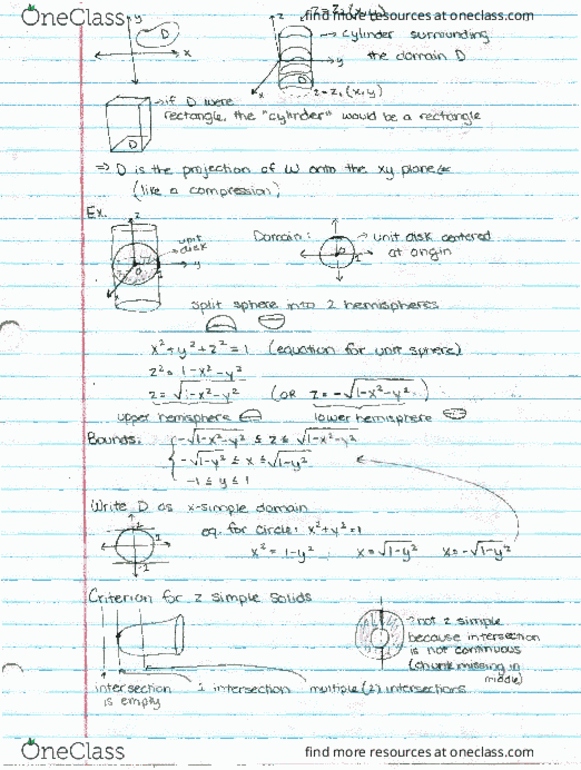 OneClass
find more resources at oneclass.com
y
D
x
z
z = z₂(x,y)
→ cylinder surrounding
the domain D
y
D
x
z = z₁(x,y)
→ if D were
rectangle, the "cylinder" would be a rectangle
D
⇒ D is the projection of W onto the xy plane
(like a compression)
Ex.
z
unit
disk
y
Domain:
D
1
→ unit disk centered
at origin
split sphere into 2 hemispheres
x² + y² + z² = 1 (equation for unit sphere)
z² = 1 - x² - y²
z = √1-x²-y² (OR z = -√1-x²-y² )
upper hemisphere lower hemisphere
Bounds: { -√1-x²-y² ≤ z ≤ √1-x²-y²
-√1-y² ≤ x ≤ √1-y²
-1 ≤ y ≤ 1
Write D as x-simple domain
1
-1
eq. for circle: x² + y² = 1
x² = 1-y² x = √1-y² x = -√1-y²
Criterion for z simple solids
→ not z simple
because intersection
is not continuous
(chunk missing in
middle)
intersection
is empty
1 intersection
multiple (2) intersections
OneClass
find more resources at oneclass.com